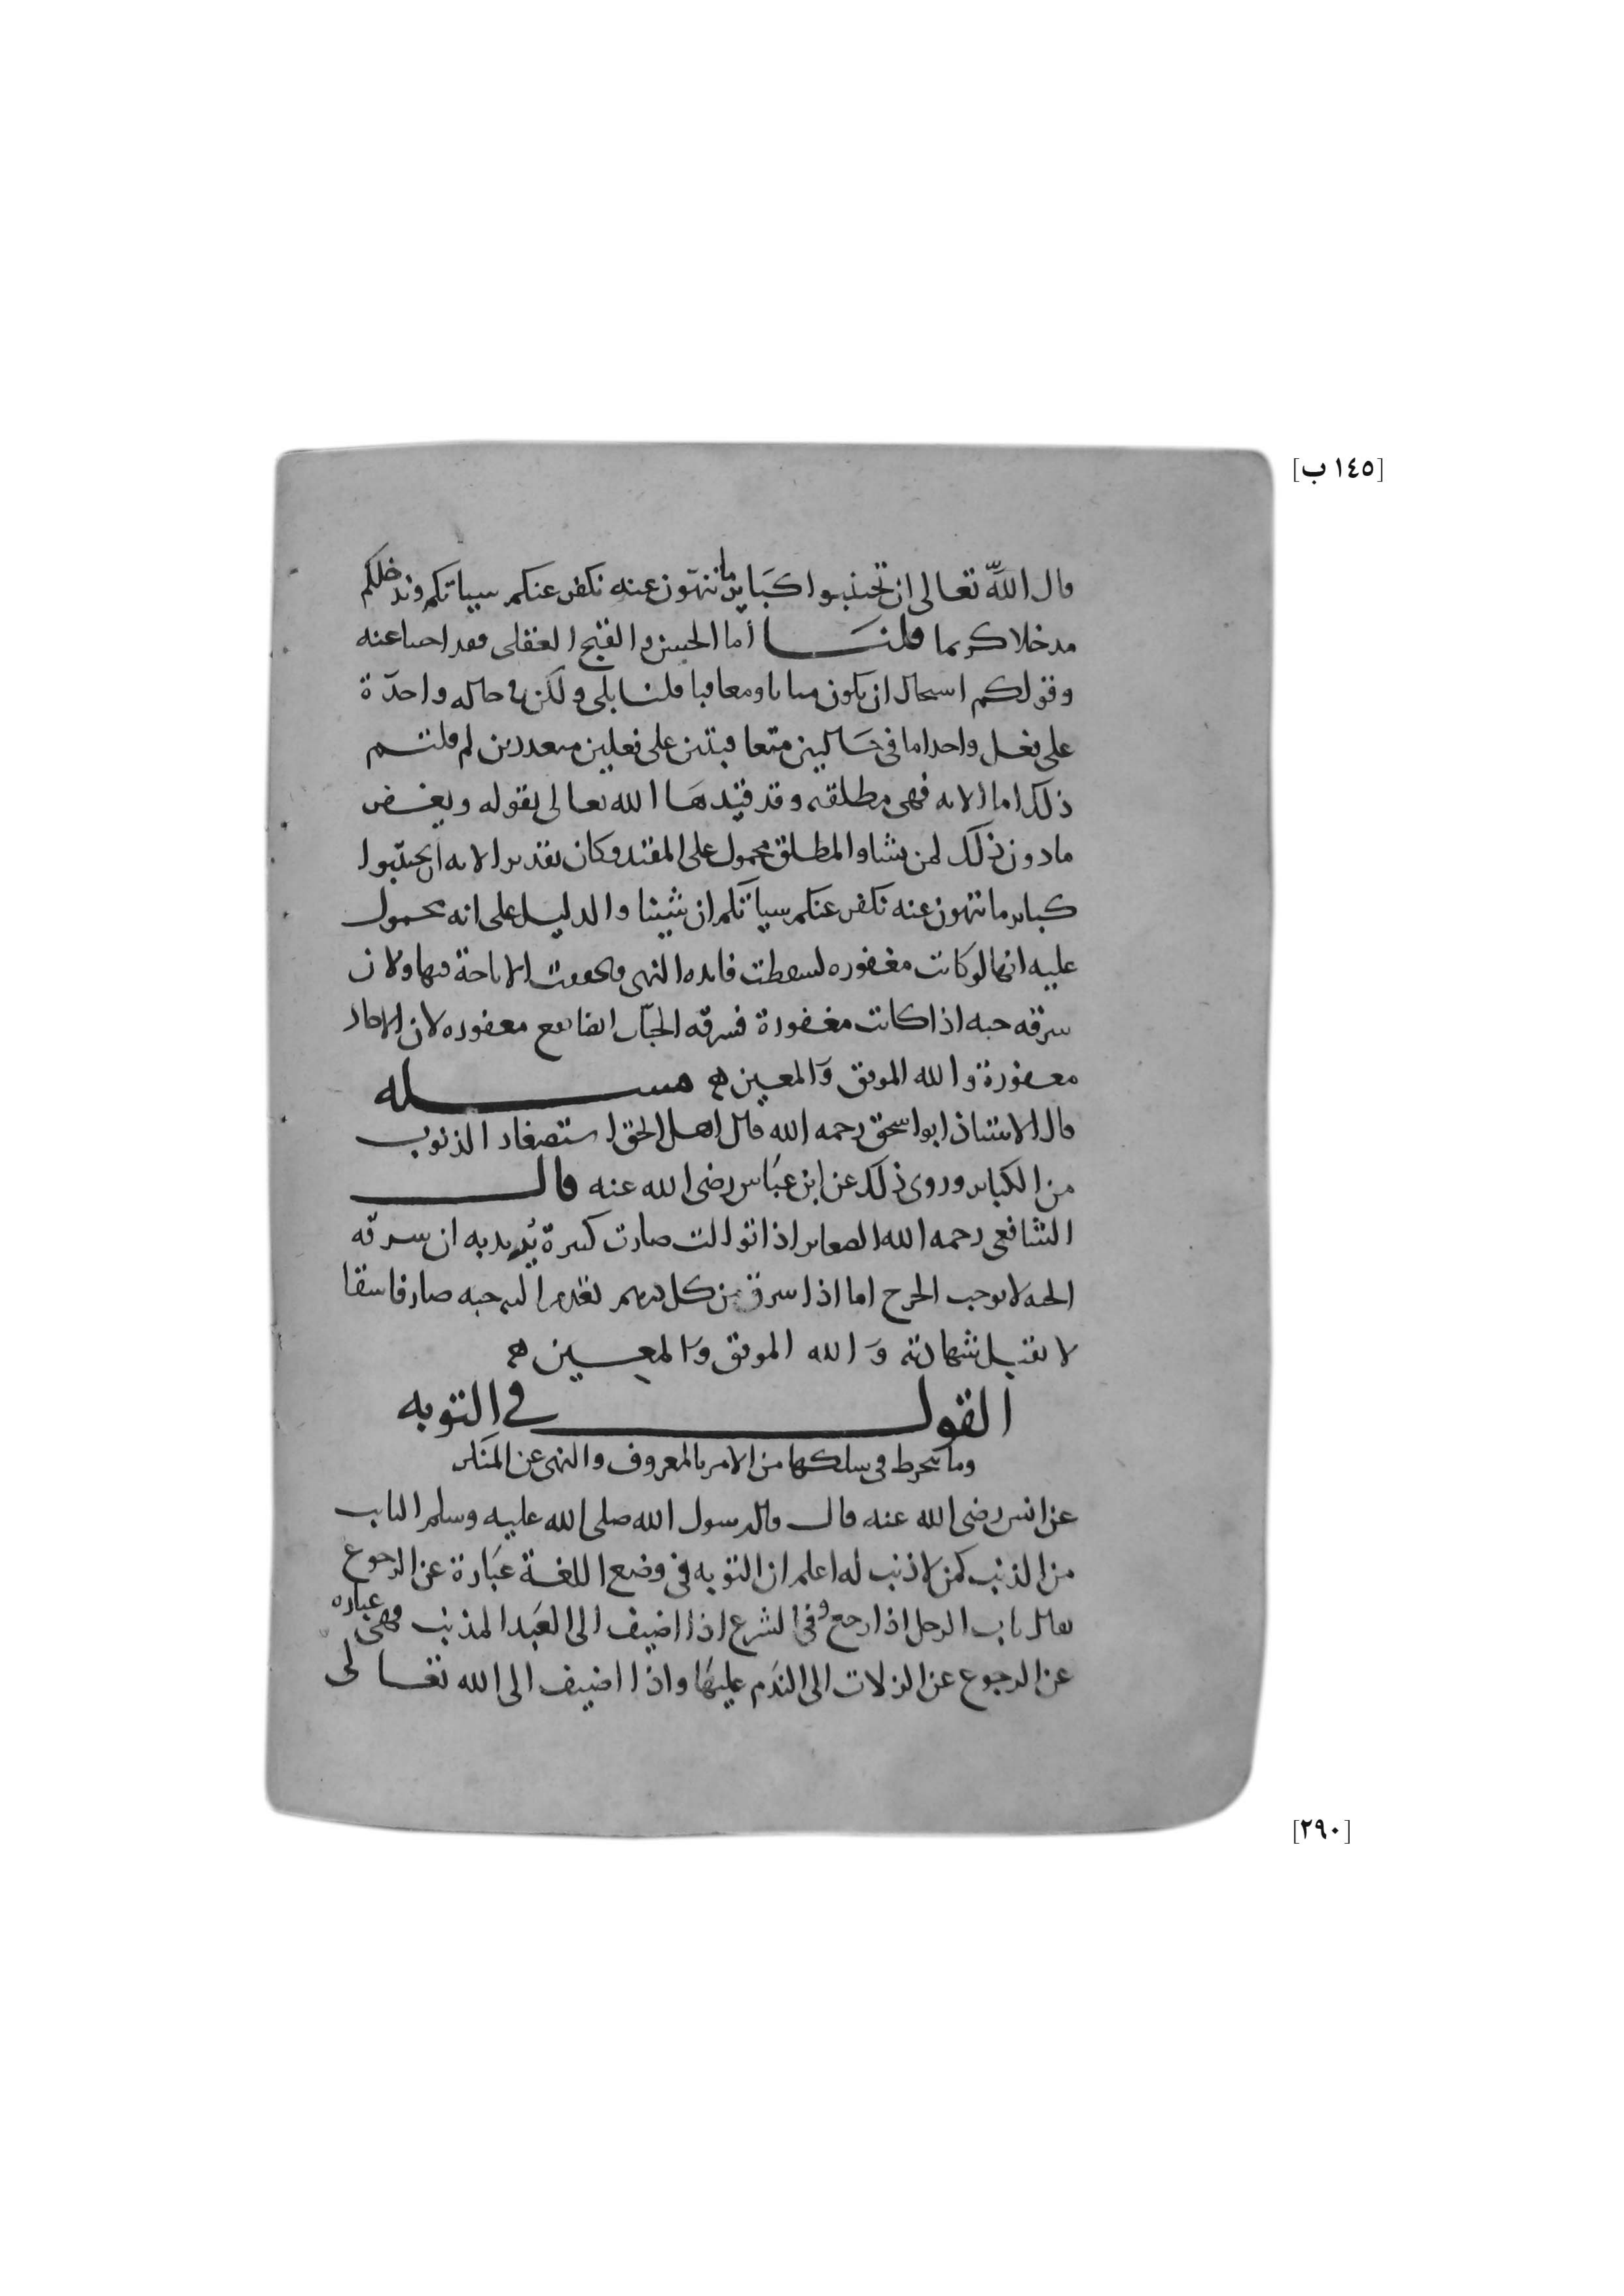 [١٤٥ ب]
قال الله تعالى ان تجتنبوا كباير ما تنهون عنه نكفر عنكم سياتكم وندخلكم
مدخلا كريما قلنا أما الحسن والقبح العقلى فقد اجبنا عنه
وقولكم استحال ان يكون مثابا ومعاقبا قلنا بلى ولكن فى حاله واحدة
على فعل واحد اما فى حالين متعاقبتين على فعلين متعددين لم قلتم
ذلك اما الايه فهى مطلقة وقد قيدها الله تعالى بقوله ويغفر
ما دون ذلك لمن يشا والمطلق محمول على المقيد وكان تقدير الايه ان تجتنبوا
كباير ما تنهون عنه نكفر عنكم سياتكم ان شينا والدليل على انه محمول
عليه انها لو كانت مغفوره لسقطت فايده النهى وتحققت الاباحة فيها ولان
سرقه حبه اذا كانت مغفورة فسرقه الحبات ايضا تقع مغفوره لان الاحاد
مغفورة والله الموفق والمعين مسله
قال الاستاذ ابو اسحق رحمه الله قال اهل الحق استصغار الذنوب
من الكباير وروى ذلك عن ابن عباس رضى الله عنه قال
الشافعى رحمه الله الصغاير اذا توالت صارت كبيرة يريد به ان سرقه
الحبه لا توجب الجرح اما اذا سرق من كل تقدم اليه حبه صار فاسقا
لا تقبل شهادته والله الموفق والمعين
القول فى التوبه
وما ينخرط فى سلكها من الامر بالمعروف والنهى عن المنكر
عن انس رضى الله عنه قال قال رسول الله صلى الله عليه وسلم التايب
من الذنب كمن لا ذنب له اعلم ان التوبه فى وضع اللغة عبارة عن الرجوع
يقال تاب الرجل اذا رجع وفى الشرع اذا اضيف الى العبد المذنب فهى عباره
عن الرجوع عن الزلات الى الندم عليها واذا اضيف الى الله تعالى
[٢٩٠]